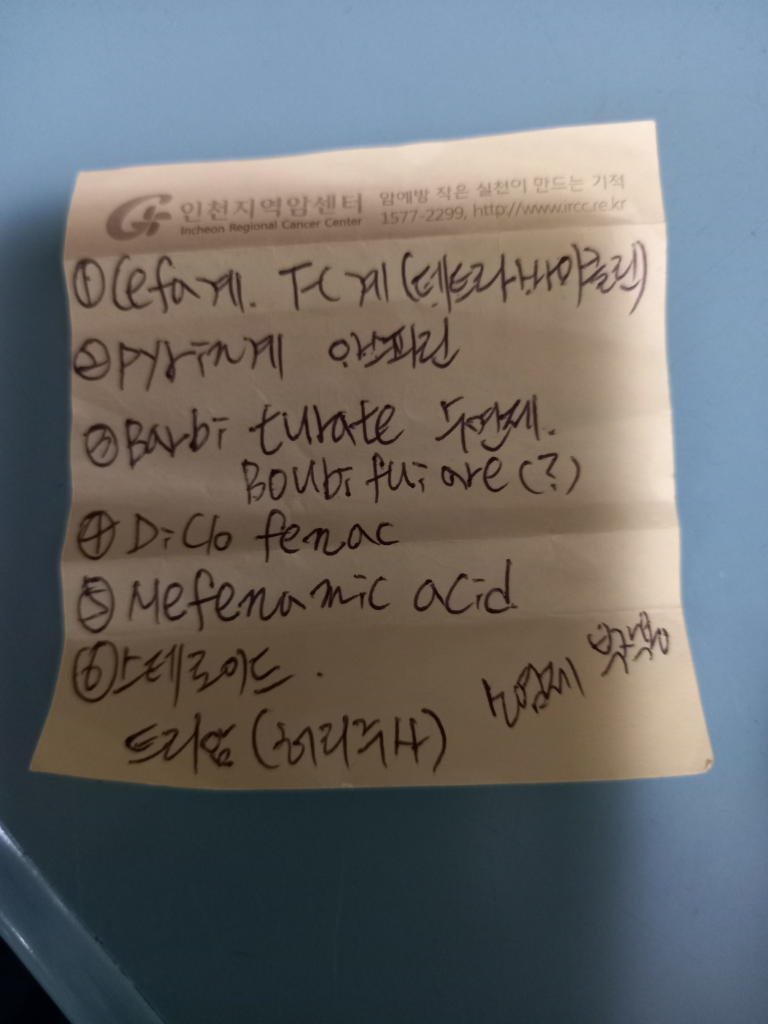 인천지역암센터
Incheon Regional Cancer Center
암예방 작은 실천이 만드는 기적
1577-2299, http://www.ircc.re.kr
①Cefa계. T-C계(테트라싸이클린)
②pyrin계 아스피린
③Barbi turate 수면제.
Boubi fui are(?)
④Diclo fenac
⑤Mefenamic acid
⑥스테로이드.
소염제 부작용
트리암(허리주사)